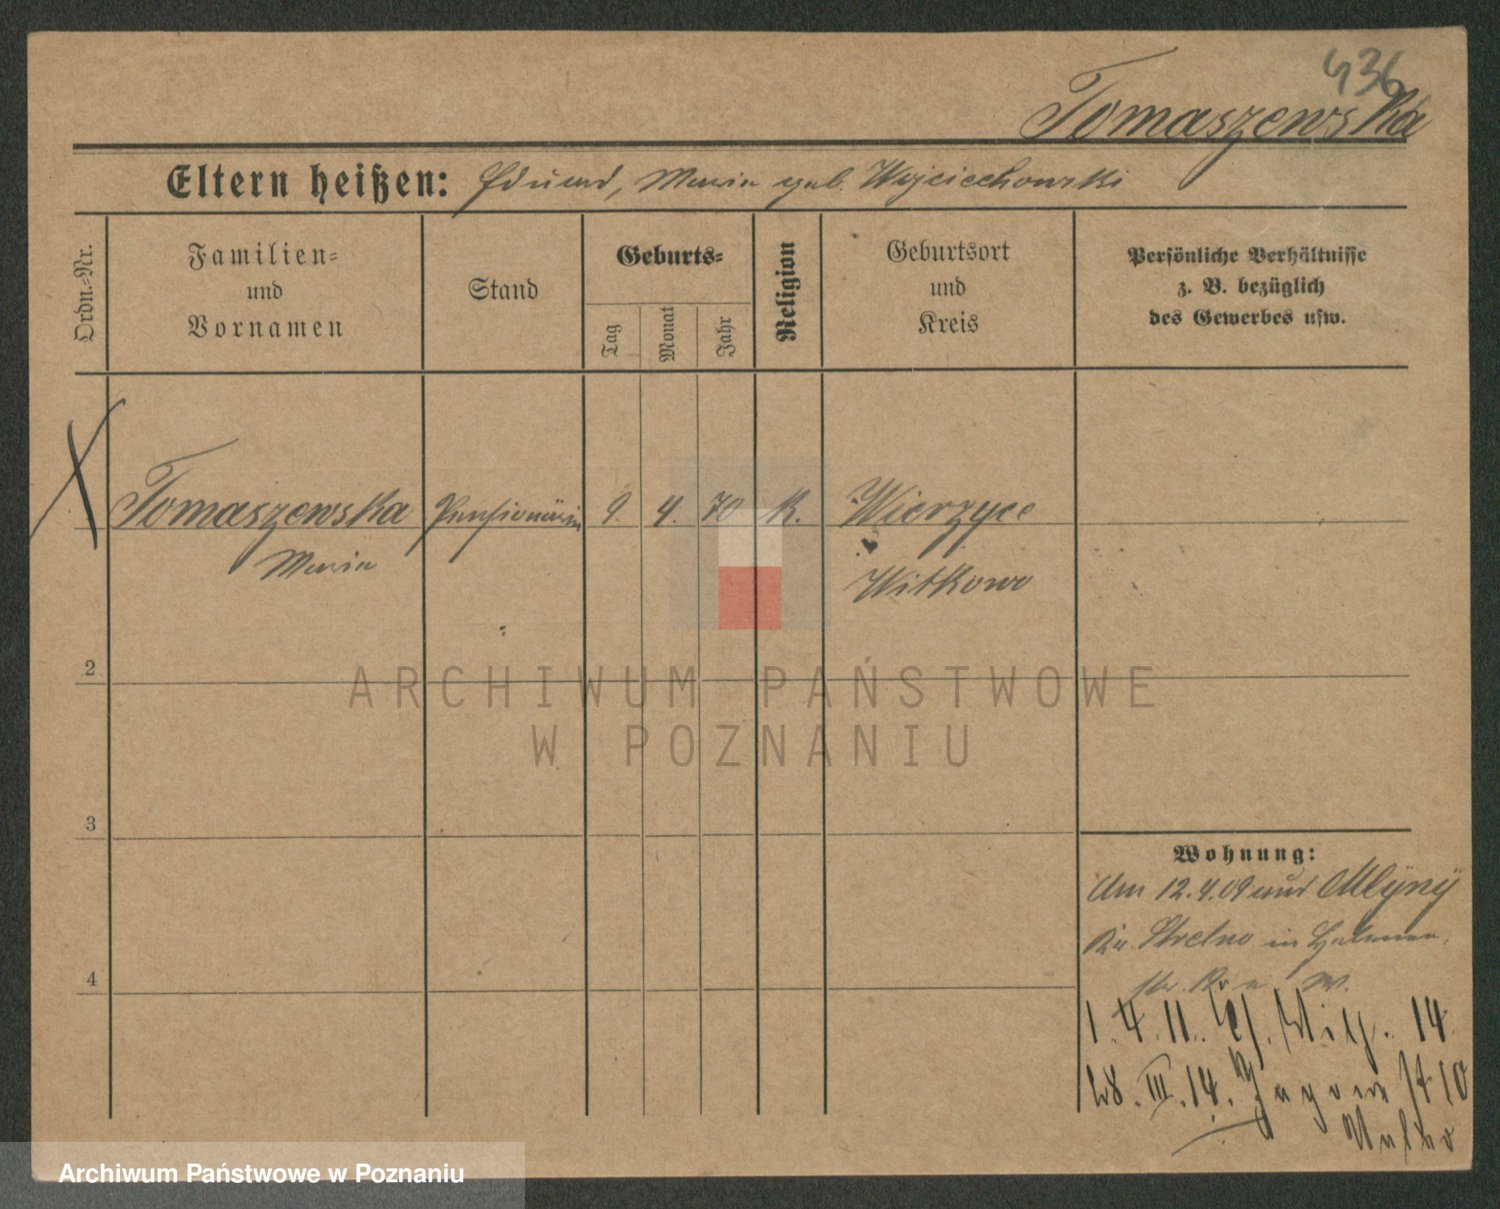 436
Tomaszewska
Eltern heißen: Eduard, Maria geb. Wojciechowski
Ordn.-Nr.
Familien-
und
Vornamen
Stand
Geburts-
Tag
Monat
Jahr
Religion
Geburtsort
und
Kreis
Persönliche Verhältnisse
z. B. bezüglich
des Gewerbes usw.
Tomaszewska Pensionärin 9. 4. 70 K. Wierzyce
Maria
Witkowo
2
ARCHIWUM PAŃSTWOWE
W POZNANIU
3
Wohnung:
Am 12.4.09 aus Mlÿnÿ
Kr. Strelno in
4
1.4.11. 14.
28.III.14. Jagow 10
Archiwum Państwowe w Poznaniu